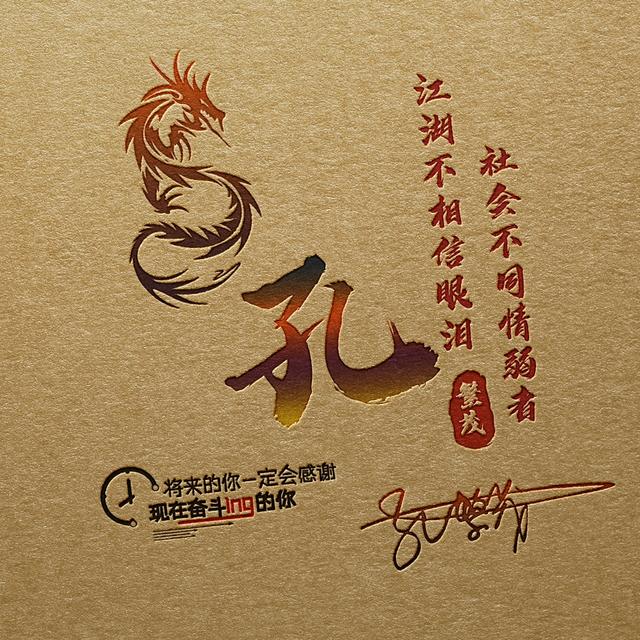 社会不同情弱者
江湖不相信眼泪
繁茂
孔
将来的你一定会感谢
现在奋斗ing的你